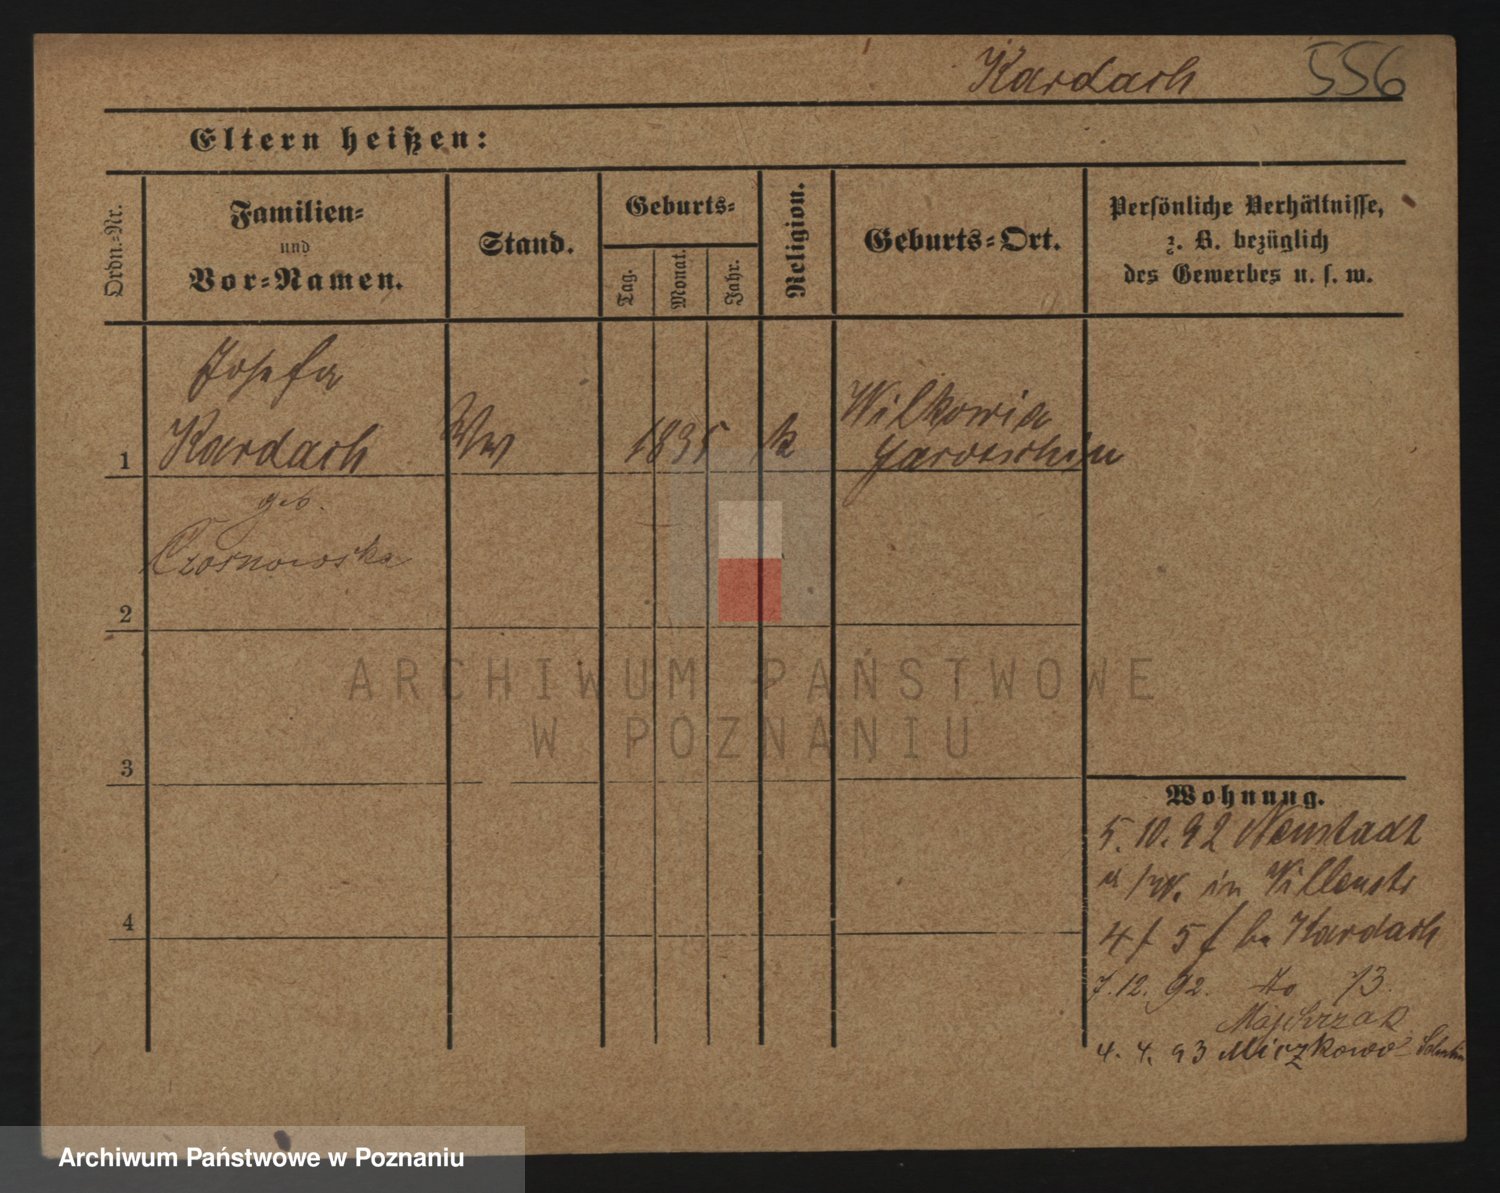 Kardach 556
Eltern heißen:
Ordn.=Nr.
Familien=
und
Vor=Namen.
Stand.
Geburts=
Tag.
Monat.
Jahr.
Religion.
Geburts=Ort.
Persönliche Verhältnisse,
z. B. bezüglich
des Gewerbes u. s. w.
1
Josefa
Kardach
geb.
Czosnowska
Ww
1835
k
Wilkowia
Jarotschin
2
3
4
Wohnung.
5.10.92 Neustadt
a/W. in Villenstr
4/5 f b. Kardach
7.12.92. do 73.
Majchrzak
4.4.93 Miczkowo
ARCHIWUM PAŃSTWOWE
W POZNANIU
Archiwum Państwowe w Poznaniu